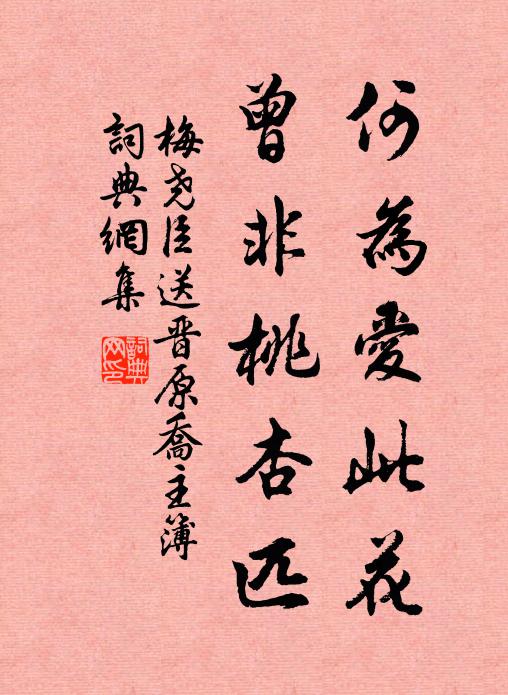 何為愛此花
曾非桃杏匹
梅尧臣送晋原喬主簿
詞典網集
詞典网印